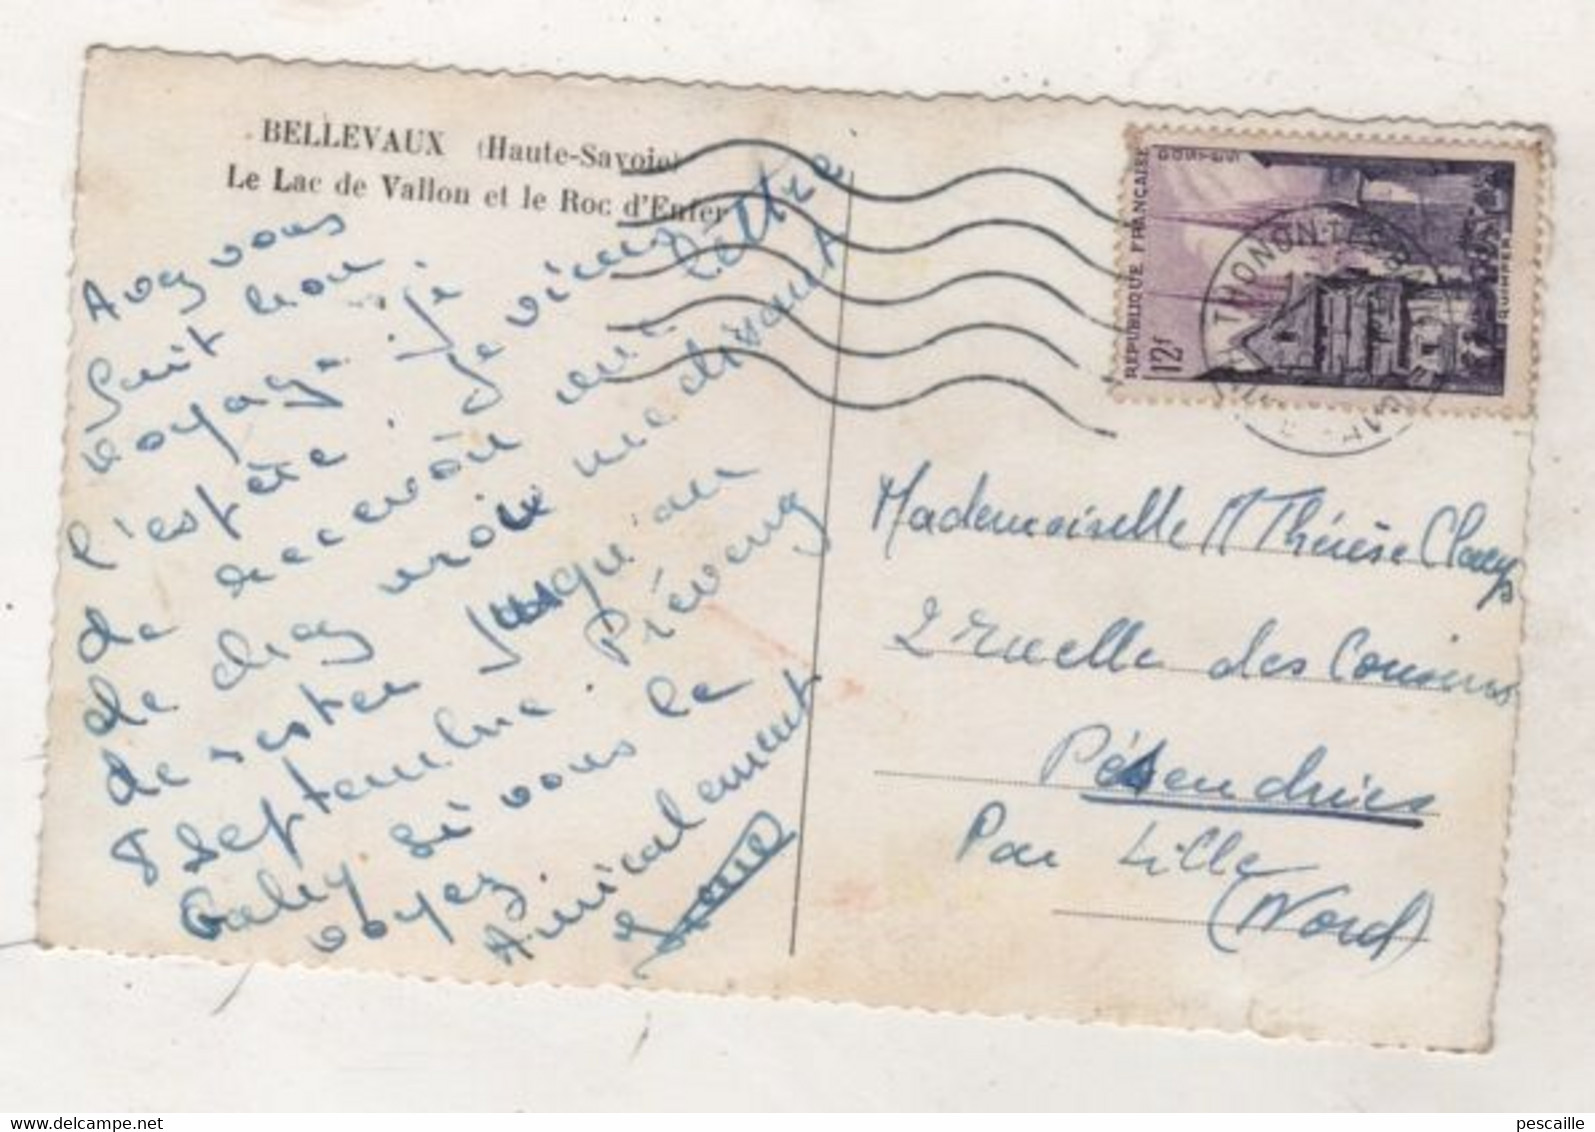 BELLEVAUX (Haute-Savoie)
Le Lac de Vallon et le Roc d'Enfer
Avez vous
fait bon
voyage. je
l'espère. je viens
de recevoir une lettre
de chez moi me disant
de rester jusqu'au
8 septembre. Prévenez
Gaby si vous le
voyez.
Amicalement
RÉPUBLIQUE FRANÇAISE
POSTES
12F
QUIMPER
THONON-LES-B
Mademoiselle M Thérèse Claeys
2 ruelle des Cousins
Par Lille
(Nord)
pescaille
delcampe.net